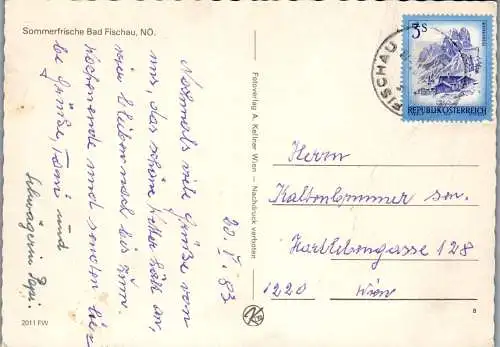 Sommerfrische Bad Fischau, NÖ.
Nochmals viele Grüße von
uns, das schöne Wetter hält an,
wir bleiben noch bis zum
Wochenende und senden lie
be Grüße, Tomi und
Schwägerin Pepi
20. V. 83
Fotoverlag A. Kellner Wien — Nachdruck verboten
FISCHAU
3 S
REPUBLIK ÖSTERREICH
Herrn
Kaltenbrunner sen.
1220 Wien
8
2011 FW